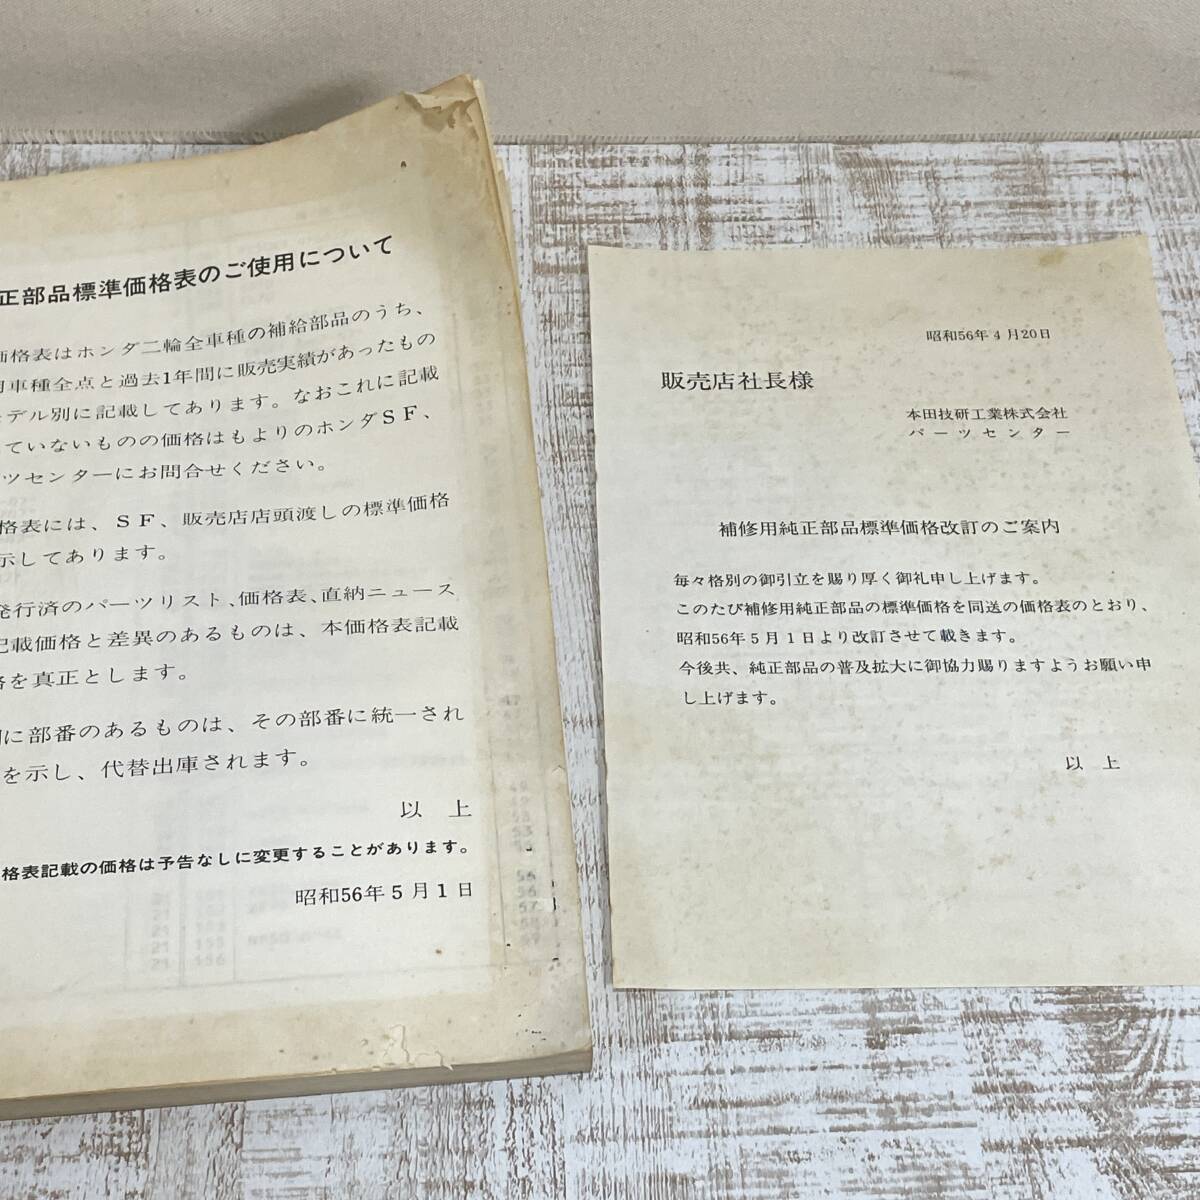 正部品標準価格表のご使用について
価格表はホンダ二輪全車種の補給部品のうち、
車種全点と過去1年間に販売実績があったもの
モデル別に記載してあります。なおこれに記載
ていないものの価格はもよりのホンダSF、
ツセンターにお問合せください。
格表には、SF、販売店店頭渡しの標準価格
示してあります。
発行済のパーツリスト、価格表、直納ニュース
記載価格と差異のあるものは、本価格表記載
格を真正とします。
に部番のあるものは、その部番に統一され
を示し、代替出庫されます。
以 上
格表記載の価格は予告なしに変更することがあります。
昭和56年5月1日
昭和56年4月20日
販売店社長様
本田技研工業株式会社
パーツセンター
補修用純正部品標準価格改訂のご案内
毎々格別の御引立を賜り厚く御礼申し上げます。
このたび補修用純正部品の標準価格を同送の価格表のとおり、
昭和56年5月1日より改訂させて載きます。
今後共、純正部品の普及拡大に御協力賜りますようお願い申
し上げます。
以 上